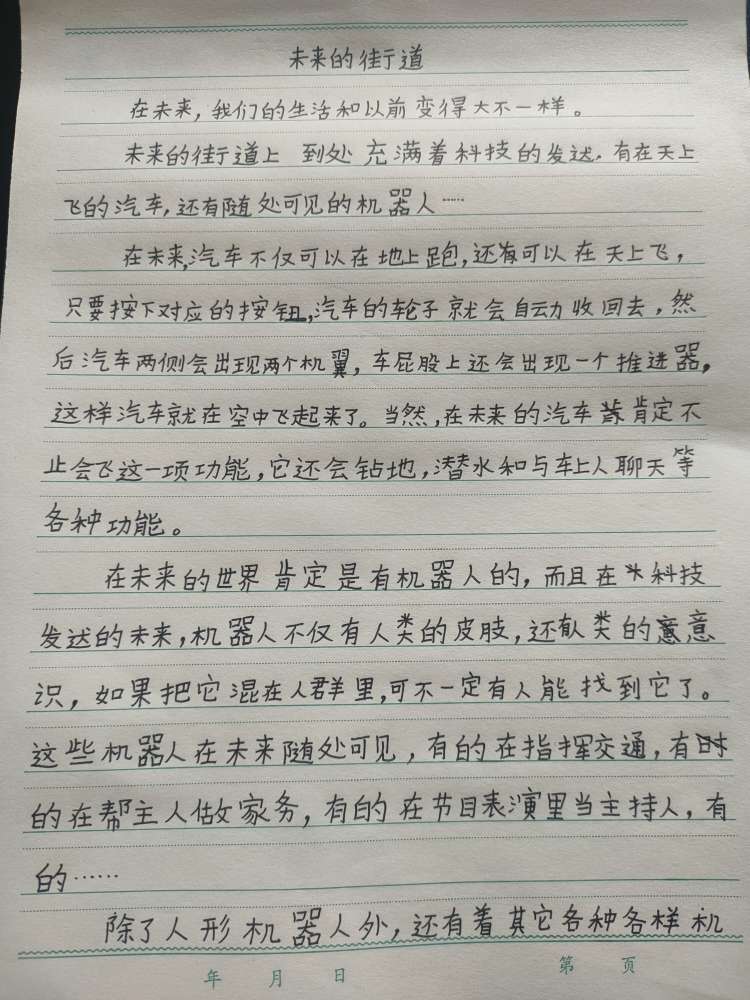 未来的街道
在未来，我们的生活和以前变得大不一样。
未来的街道上 到处充满着科技的发达。有在天上
飞的汽车，还有随处可见的机器人……
在未来，汽车不仅可以在地上跑，还有可以在天上飞，
只要按下对应的按钮，汽车的轮子就会自动收回去，然
后汽车两侧会出现两个机翼，车屁股上还会出现一个推进器，
这样汽车就在空中飞起来了。当然，在未来的汽车肯定不
止会飞这一项功能，它还会钻地，潜水和与车上人聊天等
各种功能。
在未来的世界肯定是有机器人的，而且在科技
发达的未来，机器人不仅有人类的皮肤，还有人类的意
识，如果把它混在人群里，可不一定有人能找到它了。
这些机器人在未来随处可见，有的在指挥交通，有
的在帮主人做家务，有的在节目表演里当主持人，有
的……
除了人形机器人外，还有着其它各种各样机
年 月 日 第 页